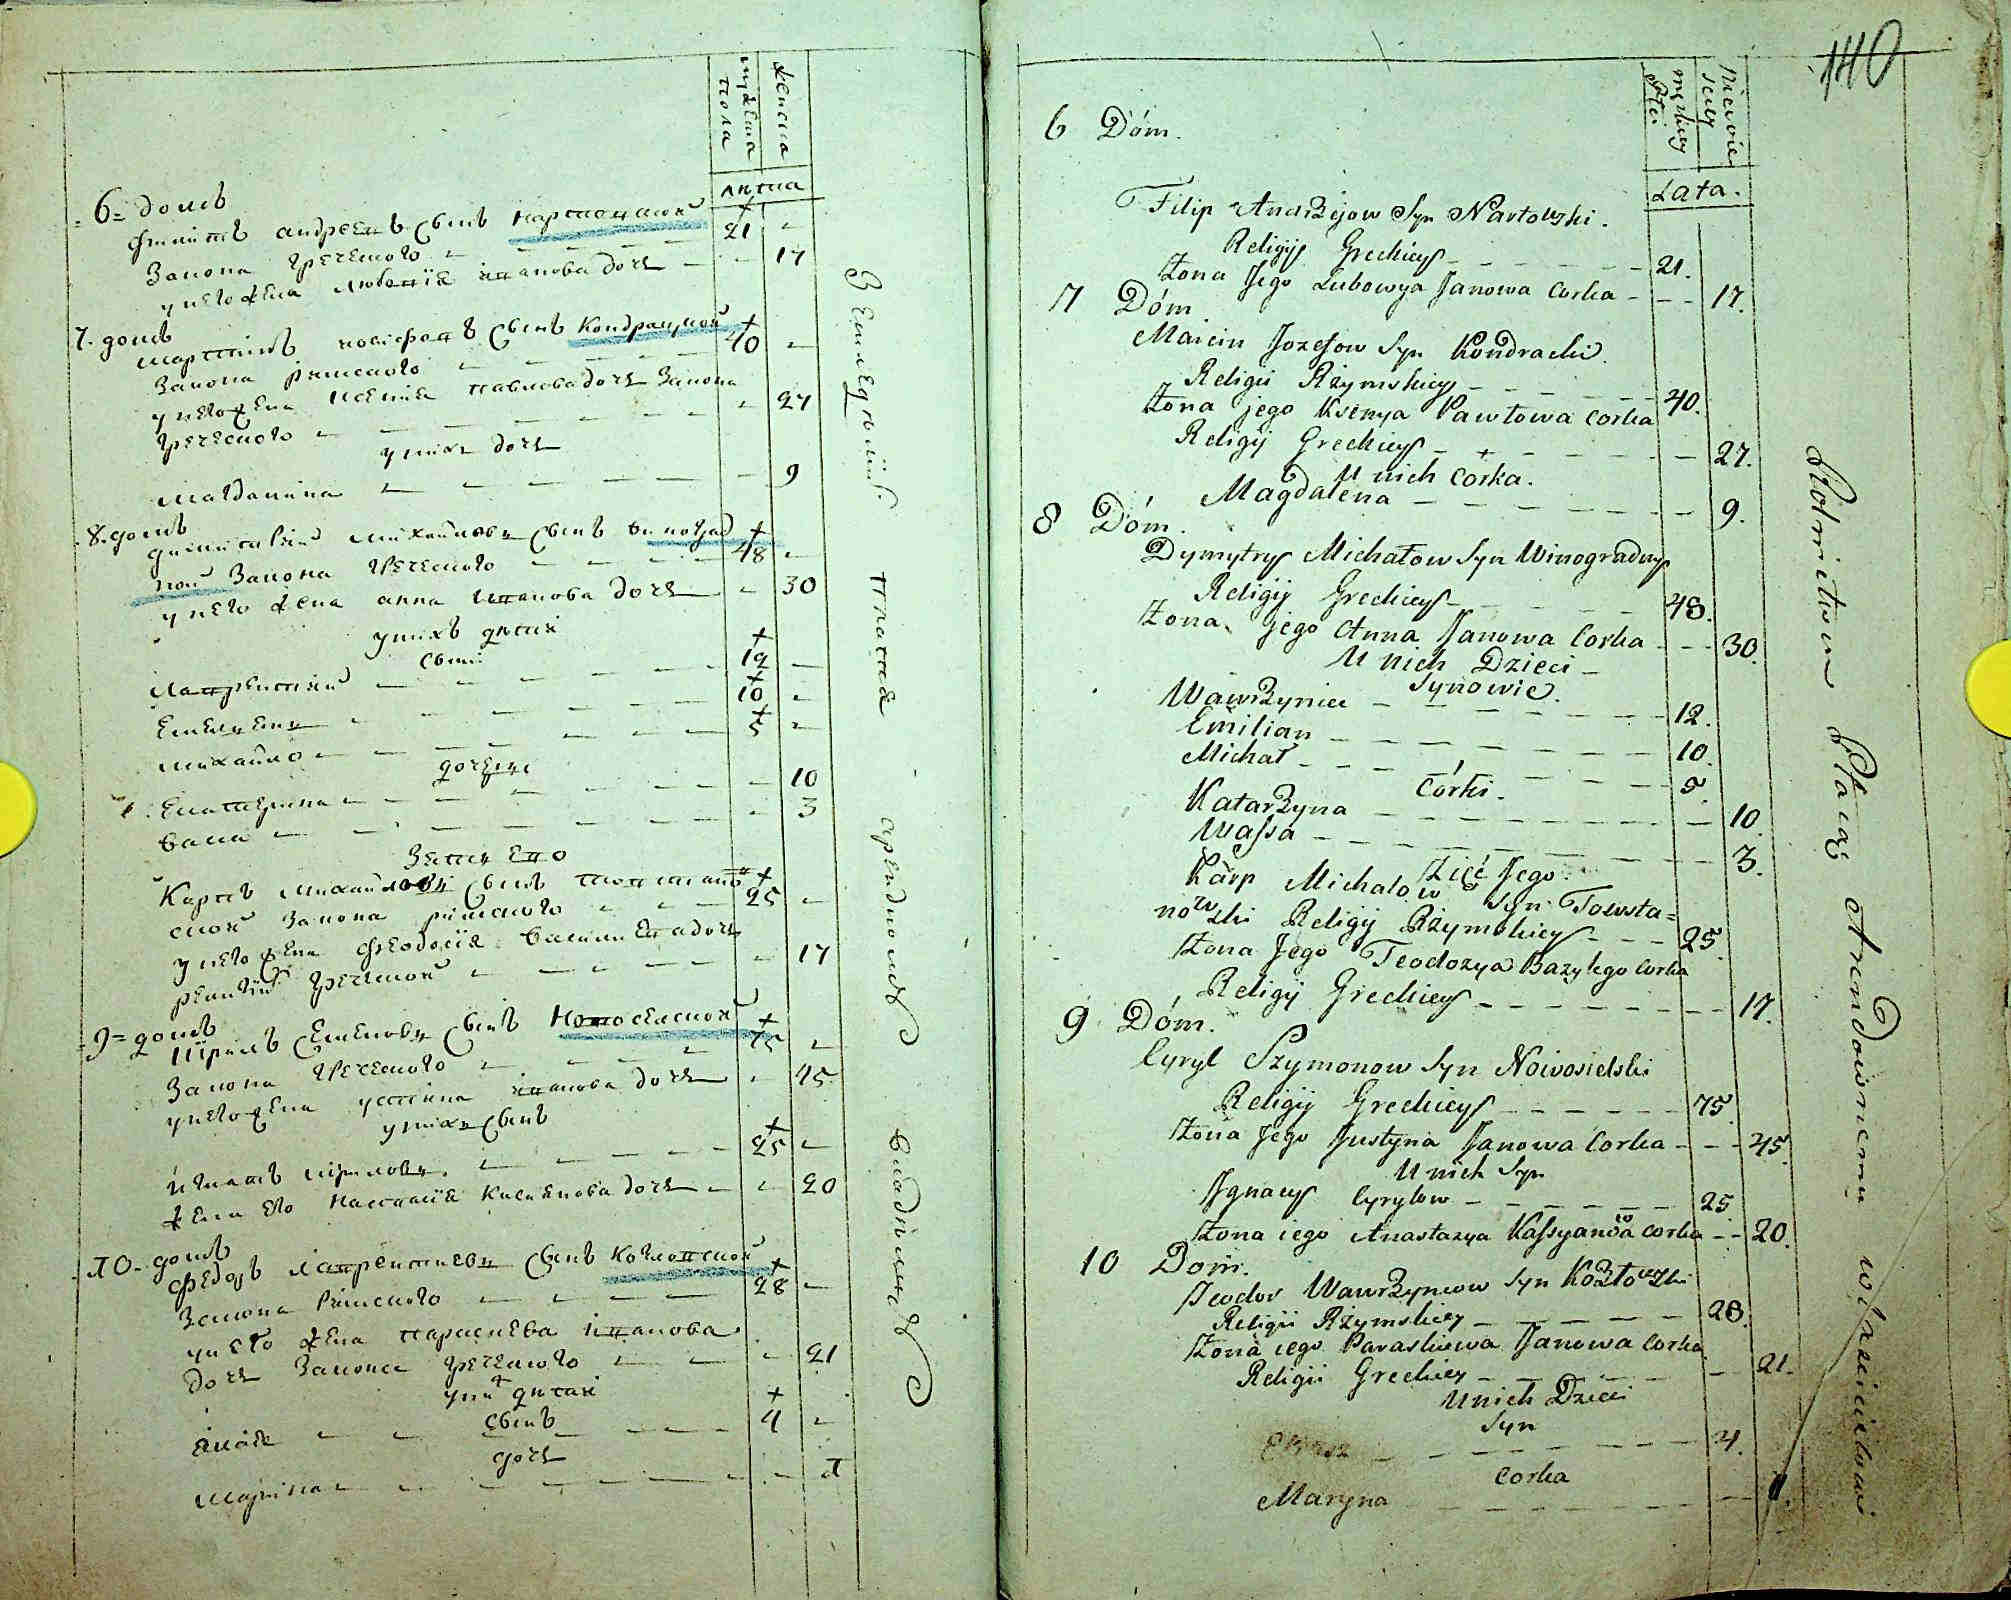 мужеска
пола
женска
лѣта
6 домъ
Филипъ Андреевъ сынъ Нартовской 21
Закона греческого
у него жена Любовія Іванова дочь 17
7 домъ
Мартинъ Іосифовъ сынъ Кондрацкой
Закона римского 40
у него жена Ксенія Павлова дочь Закона
греческого 27
у нихъ дочь
Магдалина 9
8 домъ
Димитрій Михайловъ сынъ Виноград
ной Закона греческого 48
у него жена Анна Іванова дочь 30
у нихъ дѣти
сыни
Лаврентій 12
Емелиянъ 10
Михайло 5
дочери
Екатерина 10
Васса 3
Зять его
Карпъ Михайловъ сынъ Товстанов
ской Закона римского 25
у него жена Феодосія Василиева дочь
релігіи греческой 17
9 домъ
Кирилъ Семеновъ сынъ Новоселской
Закона греческого 75
у него жена Устина Іванова дочь 45
у нихъ сынъ
Игнатъ Кириловъ 25
жена его Настасія Касиянова дочь 20
10 домъ
Федоръ Лаврентиевъ сынъ Козловской
Закона римского 28
у него жена Параскева Іванова
дочь Закона греческого 21
у них дѣти
сынъ
4
дочь
Марина 1
платня арендному владѣльцу
140
męskiey
Płci
Niewie
sciey
Lata.
6 Dóm.
Filip Andrzejow Syn Nartowski.
Religij Greckiey 21.
Żona Jego Lubowya Janowa Corka 17.
7 Dóm
Marcin Jozefow Syn Kondracki.
Religii Rżymskiey 40.
Żona jego Ksenya Pawłowa Corka
Religij Greckiey 27.
U nich Corka.
Magdalena 9.
8 Dóm.
Dymytry Michałow Syn Winogradny
Religij Greckiey 48.
Żona jego Anna Janowa Corka 30.
U nich Dzieci
Synowie.
Wawrzyniec 12.
Emilian 10.
Michał 5.
Córki.
Katarzyna 10.
Wassa 3.
Zięć Jego
Karp Michałow Syn Towsta=
nowski Religij Rżymskiey 25.
Żona Jego Teodozya Bazylego Corka
Religij Greckiey 17.
9 Dóm.
Cyryl Szymonow Syn Nowosielski
Religij Greckiey 75
Żona Jego Justyna Janowa Corka 45.
U nich Syn
Jgnacy Cyrylow 25
Żona iego Anastazya Kassyanowa Corka 20.
10 Dóm.
Teodor Wawrzyncow Syn Kozłowski
Religii Rżymskiey 28.
Żona iego Paraskiewa Janowa Corka
Religii Greckiey 21.
U nich Dzieci
Syn
4.
Corka
Maryna 1.
Płacą Arendownemu właścicielowi